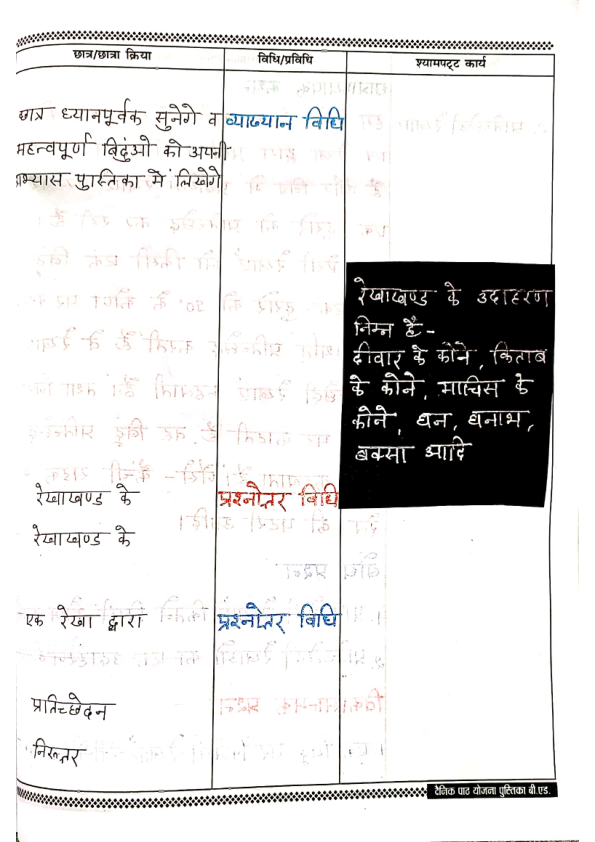 छात्र/छात्रा क्रिया
विधि/प्रविधि
श्यामपट्ट कार्य
छात्र ध्यानपूर्वक सुनेगे व
महत्वपूर्ण बिदुंओ को अपनी
अभ्यास पुस्तिका में लिखेगे
व्याख्यान विधि
रेखाखण्ड के उदाहरण
निम्न है -
दीवार के कोने, किताब
के कोने, माचिस के
कोने, घन, घनाभ,
बक्सा आदि
रेखाखण्ड के
प्रश्नोतर विधि
रेखाखण्ड के
एक रेखा द्वारा
प्रश्नोतर विधि
प्रतिच्छेदन
निरूतर
दैनिक पाठ योजना पुस्तिका बी.एड.